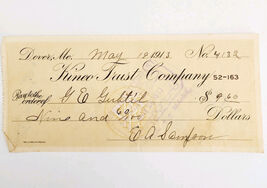 Dover, Me. May 1913 No. 4132
Trust Company 52-163
Pay to the order of G E $ 9.60
Nine and 60/100 Dollars
E A Sampson